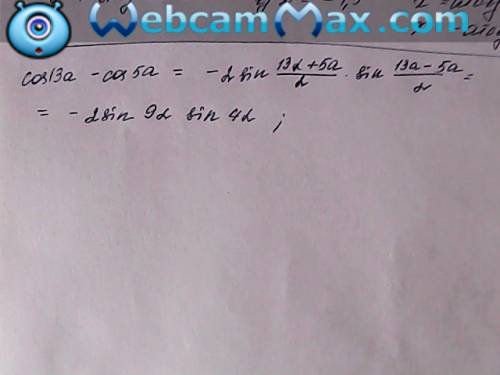 WebcamMax.com
cos13α - cos5α = -2 sin (13α+5α)/2 · sin (13α-5α)/2 =
= -2sin 9α sin 4α ;